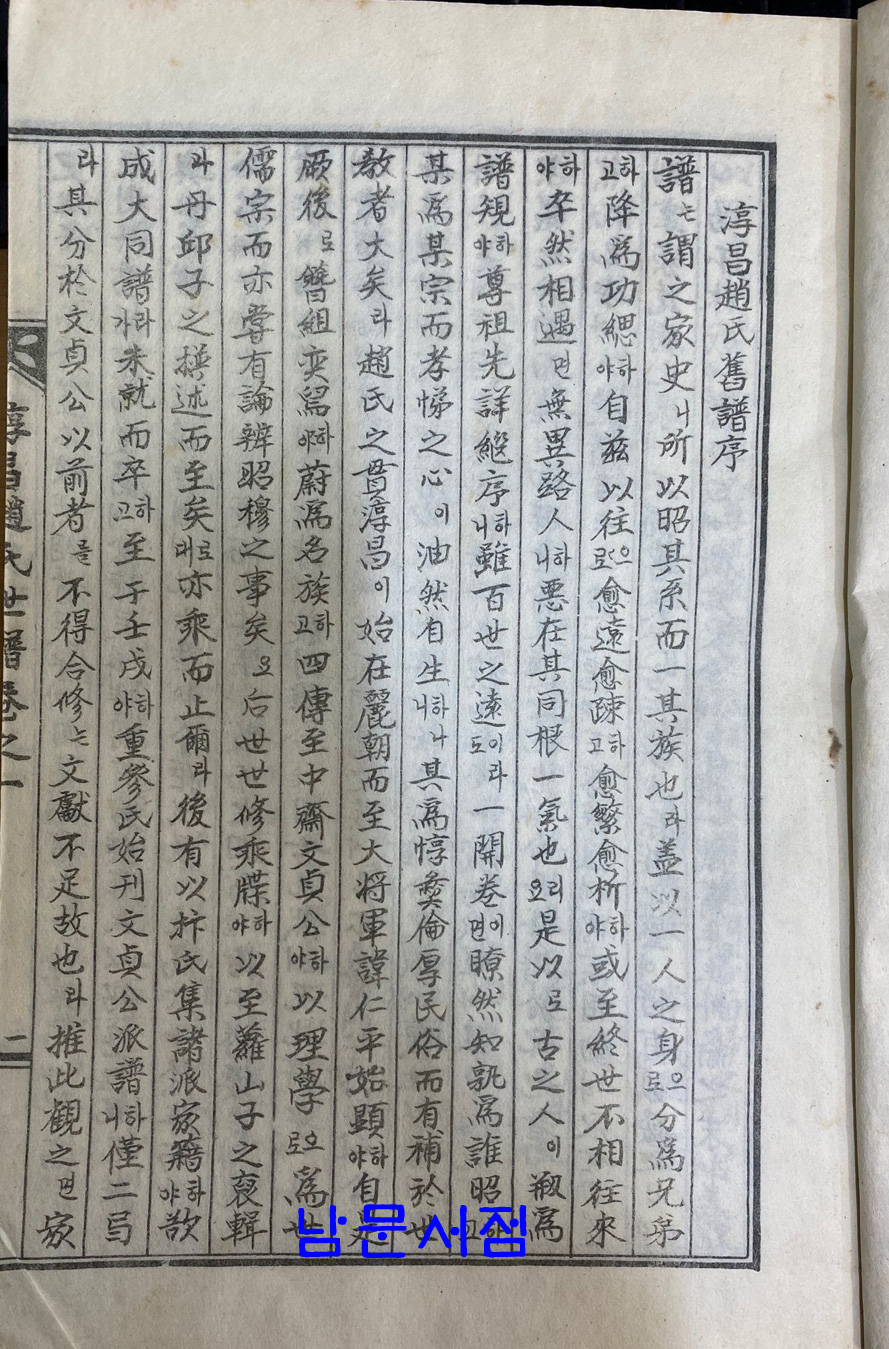 淳昌趙氏舊譜序
譜는謂之家史니所以昭其系而一其族也라盖以一人之身으로分爲兄弟
하고降爲功緦하야自玆以往으로愈遠愈踈하고愈繁愈析하야或至終世不相往來
하야卒然相遇면無異路人하니惡在其同根一氣也리요是以로古之人이剏爲
譜規하야尊祖先詳継序하니雖百世之遠이도라一開卷이면瞭然知孰爲誰昭하고
某爲某宗而孝悌之心이油然自生하니나其爲惇奬倫厚民俗而有補於世
敎者大矣라趙氏之貫淳昌이始在麗朝而至大將軍諱仁平始顯하야自是
厥後로簪組奕舃하야蔚爲名族하고四傳至中齋文貞公하야以理學으로爲世
儒宗而亦嘗有論辨昭穆之事矣요后世世修乘牒하야以至蘿山子之裒輯
라丹邱子之撰述而至矣로대亦乘而止爾라後有以抃氏集諸派家籍하야欲
成大同譜라가未就而卒하고至于壬戌하야重參氏始刊文貞公派譜하니僅二局
라其分於文貞公以前者를不得合修는文獻不足故也라推此觀之면家
淳昌趙氏世譜卷之一
一
남문서점